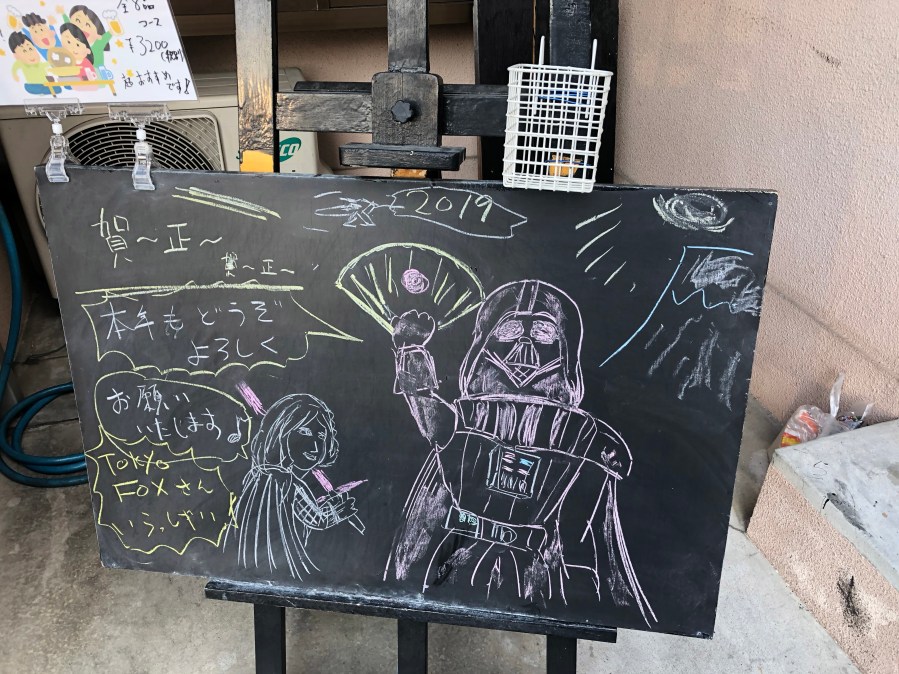 コース
¥3200
おすすめ
です!!
2019
賀～正～
賀～正～
本年もどうぞ
よろしく
お願い
いたします♪
TOKYO
FOXさん
いらっしゃい!